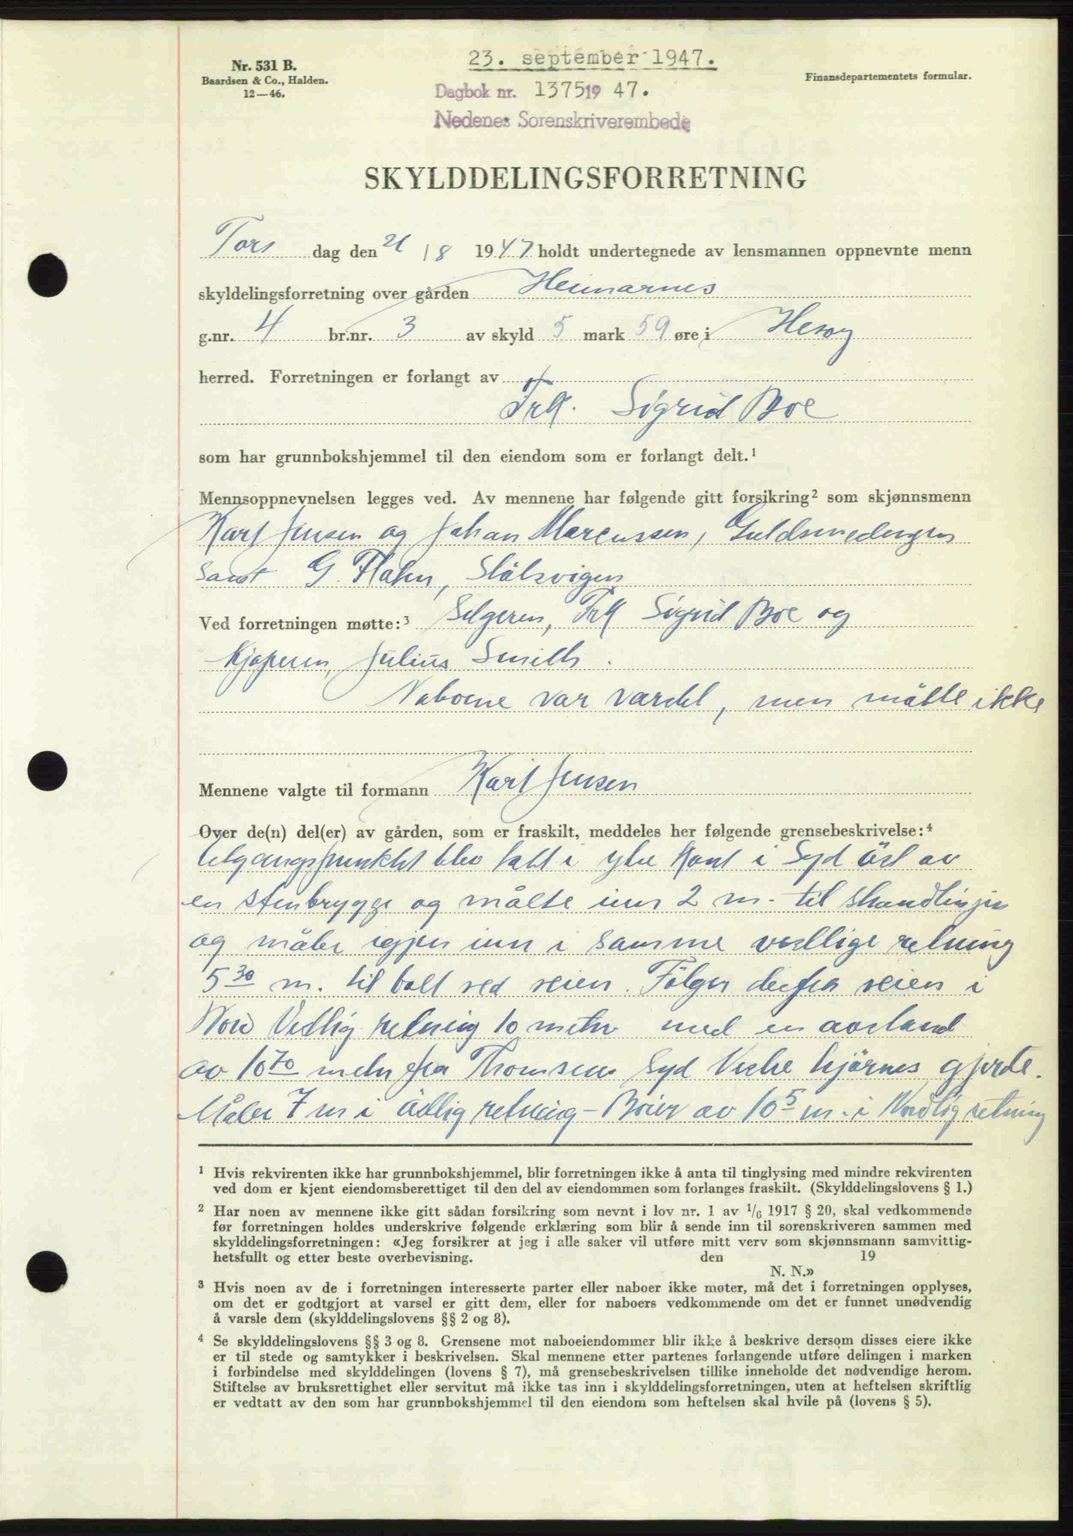 Nr. 531 B.
Baardsen & Co., Halden.
12—46.
23. september 1947.
Dagbok nr. 1375 19 47.
Nedenes Sorenskriverembede
Finansdepartementets formular.
SKYLDDELINGSFORRETNING
Tors dag den 21/8 1947 holdt undertegnede av lensmannen oppnevnte menn
skyldelingsforretning over gården
g.nr. 4 br.nr. 3 av skyld 5 mark 59 øre i Hisøy
herred. Forretningen er forlangt av
Frk. Sigrid Boe
som har grunnbokshjemmel til den eiendom som er forlangt delt.¹
Mennsoppnevnelsen legges ved. Av mennene har følgende gitt forsikring² som skjønnsmenn
Karl Jensen og Johan Marcussen, Guldsmedengen
samt G. Flaten, Stølsvigen
Ved forretningen møtte:³ Selgeren, Frk Sigrid Boe og
kjøperen, Julius Smith.
Naboene var varslet, men møtte ikke
Mennene valgte til formann Karl Jensen
Over de(n) del(er) av gården, som er fraskilt, meddeles her følgende grensebeskrivelse:⁴
Utgangspunktet blev tatt i ytre Kant i Syd öst av
en stenbrygge og målte inn 2 m. til strandlinjen
og måler igjen inn i samme vestlige retning
5 30 m. til bolt ved veien. Fölger derfra veien i
Nord Vestlig retning 10 meter med en avstand
av 10 70 meter fra Thomsens Syd Vestre hjörnes gjerde.
Måler 7 m i östlig retning – Böier av 10 5 m. i Nordlig retning
¹ Hvis rekvirenten ikke har grunnbokshjemmel, blir forretningen ikke å anta til tinglysing med mindre rekvirenten
ved dom er kjent eiendomsberettiget til den del av eiendommen som forlanges fraskilt. (Skylddelingslovens § 1.)
² Har noen av mennene ikke gitt sådan forsikring som nevnt i lov nr. 1 av 1/6 1917 § 20, skal vedkommende
før forretningen holdes underskrive følgende erklæring som blir å sende inn til sorenskriveren sammen med
skylddelingsforretningen: «Jeg forsikrer at jeg i alle saker vil utføre mitt verv som skjønnsmann samvittig-
hetsfullt og etter beste overbevisning. den 19
N. N.»
³ Hvis noen av de i forretningen interesserte parter eller naboer ikke møter, må det i forretningen opplyses,
om det er godtgjort at varsel er gitt dem, eller for naboers vedkommende om det er funnet unødvendig
å varsle dem (skylddelingslovens §§ 2 og 8).
⁴ Se skylddelingslovens §§ 3 og 8. Grensene mot naboeiendommer blir ikke å beskrive dersom disses eiere ikke
er til stede og samtykker i beskrivelsen. Skal mennene etter partenes forlangende utføre delingen i marken
i forbindelse med skylddelingen (lovens § 7), må grensebeskrivelsen tillike inneholde det nødvendige herom.
Stiftelse av bruksrettighet eller servitut må ikke tas inn i skylddelingsforretningen, uten at heftelsen skriftlig
er vedtatt av den som har grunnbokshjemmel til den eiendom som heftelsen skal hvile på (lovens § 5).